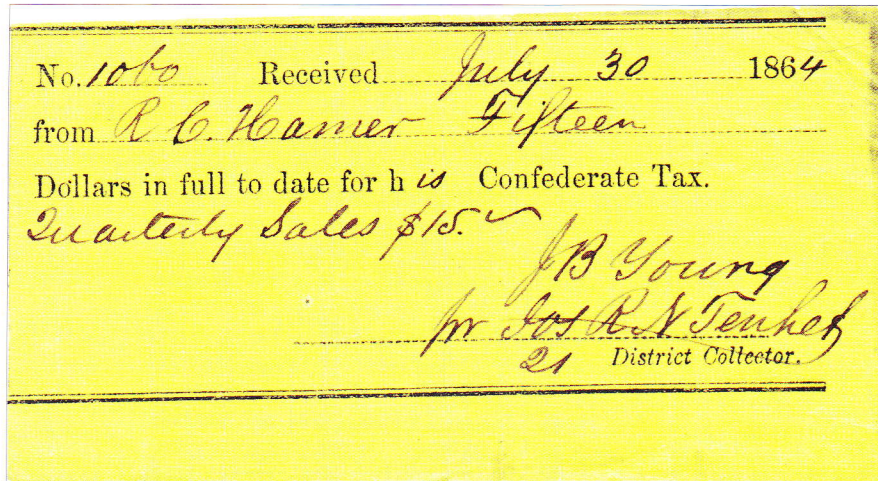 No. 1060 Received July 30 1864
from R C. Hamer Fifteen
Dollars in full to date for h is Confederate Tax.
Quarterly Sales $15.
J B Young
pr Jos R N Tenhet
21 District Collector.